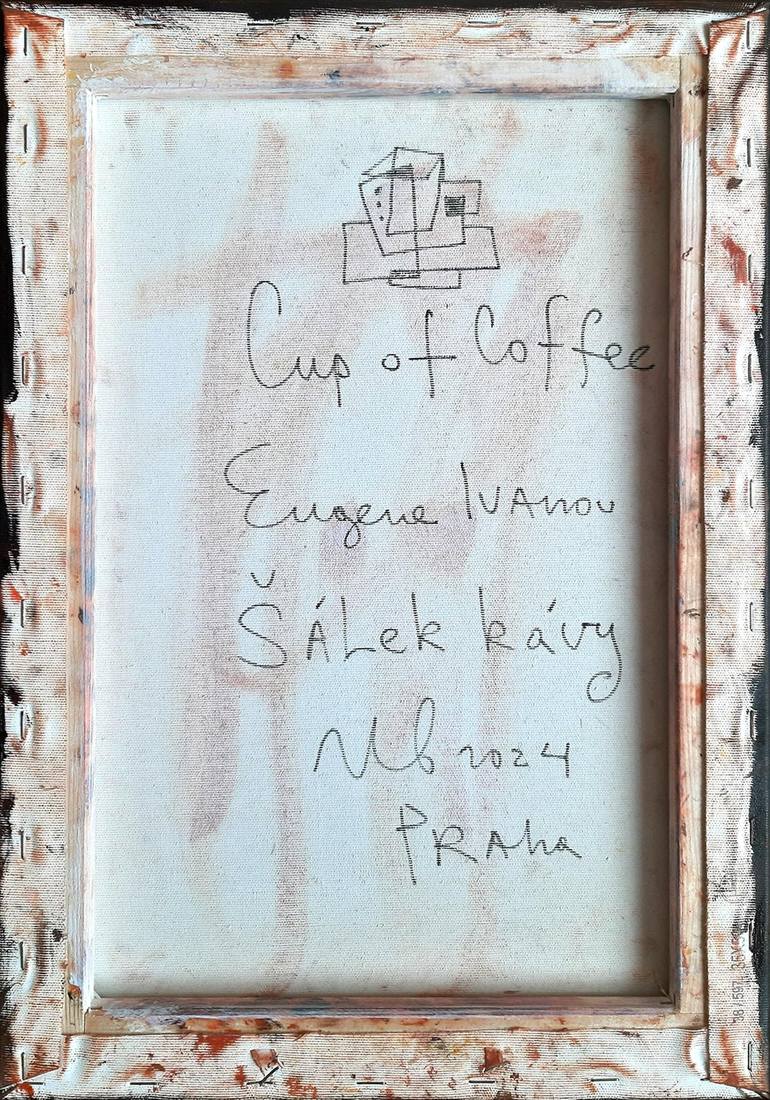 Cup of Coffee
Eugene Ivanov
Šálek kávy
2024
Praha